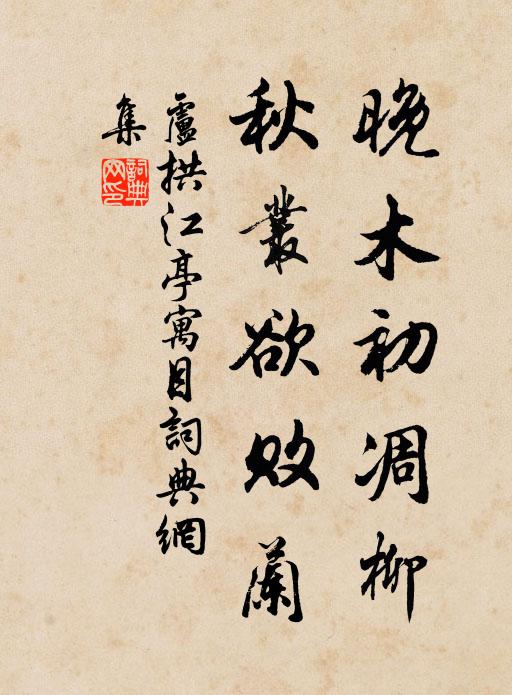 晚木初凋柳
秋叢欲敗蘭
盧拱江亭寓目詞典網
集
詞典網印